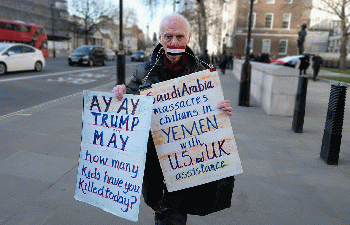 AY AY
TRUMP
MAY
how many
Kids have you
Killed today?
Saudi Arabia
massacres
civilians in
YEMEN
with
U.S. and UK
assistance